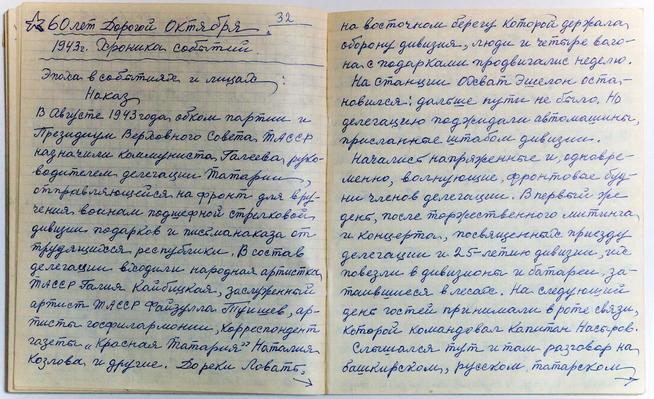 ☆ 60 лет Дорогой Октября. 32
1943г. Хроника событий.
Эпоха в событиях и лицах:
Наказ
В Августе 1943 года обком партии и
Президиум Верховного Совета ТАССР
назначили коммуниста Галеева, руко-
водителем делегации Татарии,
отправляющейся на фронт для вру-
чения воинам подшефной стрелковой
дивизии подарков и письманаказа от
трудящихся республики. В состав
делегации входили народная артистка
ТАССР Галия Кайбицкая, заслуженный
артист ТАССР Файзулла Туишев, ар-
тисты госфилармонии, корреспондент
газеты „Красная Татария" Наталия
Козлова и другие. До реки Ловать,
→
на восточном берегу которой держала
оборону дивизия, люди и четыре ваго-
на с подарками продвигалис неделю.
На станции Охват Эшелон оста-
новился: дальше пути не было. Но
делегацию поджидали автомашины,
присланные штабом дивизии.
Началис напряженные и, одновре-
менно, волнующие, фронтовые буд-
ни членов делегации. В первый же
день, после торжественного митинга
и концерта, посвященных приезду
делегации и 25-летию дивизии, их
повезли в дивизионы и батареи, за-
таившиеся в лесах. На следующий
день гостей принимали в роте связи,
которой командовал капитан Насыров.
Слышался тут и там разговор на
башкирском, русском, татарском
→